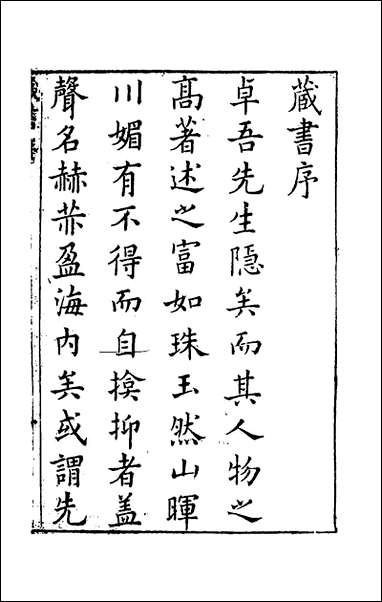 藏書序
卓吾先生隱矣而其人物之
髙著述之富如珠玉然山暉
川媚有不得而自揜抑者盖
聲名赫赫盈海内矣或謂先